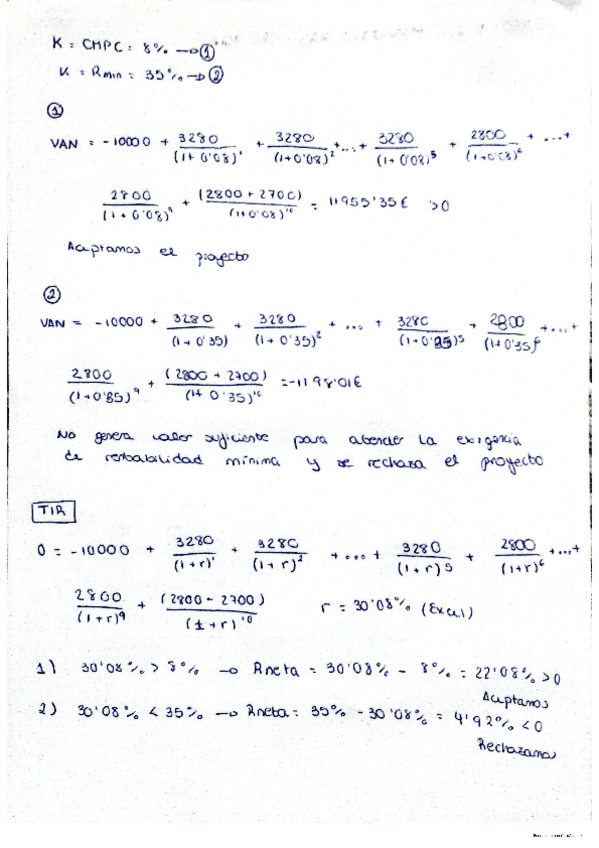 K = CMPC = 8% → ①
K = Rmin = 35% → ②
①
VAN = -10000 + 3280/(1+0'08)¹ + 3280/(1+0'08)² + ... + 3280/(1+0'08)5 + 2800/(1+0'08)⁶ + ... +
2800/(1+0'08)⁹ + (2800+2700)/(1+0'08)¹⁰ = 11955'35€ >0
Aceptamos el proyecto
②
VAN = -10000 + 3280/(1+0'35) + 3280/(1+0'35)² + ... + 3280/(1+0'35)5 + 2800/(1+0'35)⁶ + ... +
2800/(1+0'35)⁹ + (2800+2700)/(1+0'35)¹⁰ = -1198'01€
No genera valor suficiente para atender la exigencia
de rentabilidad mínima y se rechaza el proyecto
TIR
0 = -10000 + 3280/(1+r)¹ + 3280/(1+r)² + ... + 3280/(1+r)5 + 2800/(1+r)⁶ + ... +
2800/(1+r)⁹ + (2800-2700)/(1+r)¹⁰ r = 30'08% (Excel)
1) 30'08% > 8% → Rneta = 30'08% - 8% = 22'08% >0
Aceptamos
2) 30'08% < 35% → Rneta = 35% - 30'08% = 4'92% <0
Rechazamos